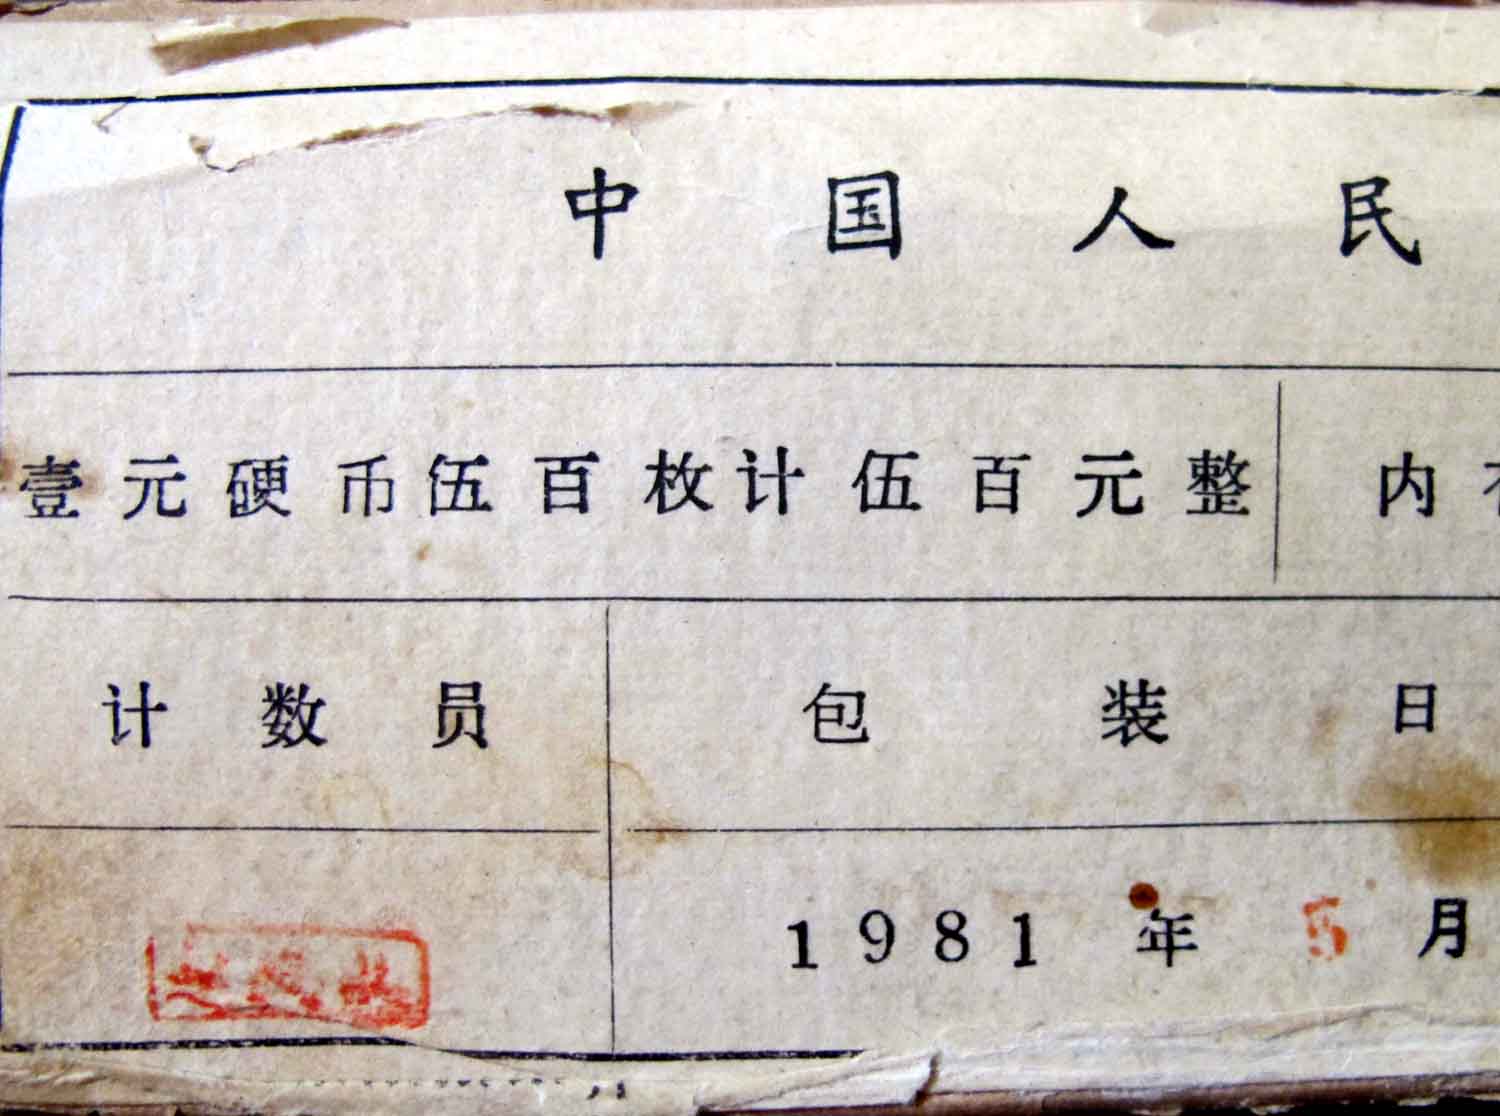 中国人民
壹元硬币伍百枚计伍百元整 内
计数员 包装日
1981年 5月